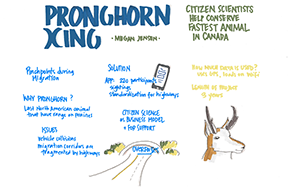 PRONGHORN
XING
- MEGAN JENSEN -
CITIZEN SCIENTISTS
HELP CONSERVE
FASTEST ANIMAL
IN CANADA
Pinchpoints during
Migration
WHY PRONGHORN?
Last North American animal
that have range on prairies
ISSUES
Vehicle collisions
migration corridors are
fragmented by highways
SOLUTION
APP: 220 participants
sightings
Standardization for highways
CITIZEN SCIENCE
as BUSINESS MODEL
+ for SUPPORT
OVERPASS
LENGTH OF PROJECT